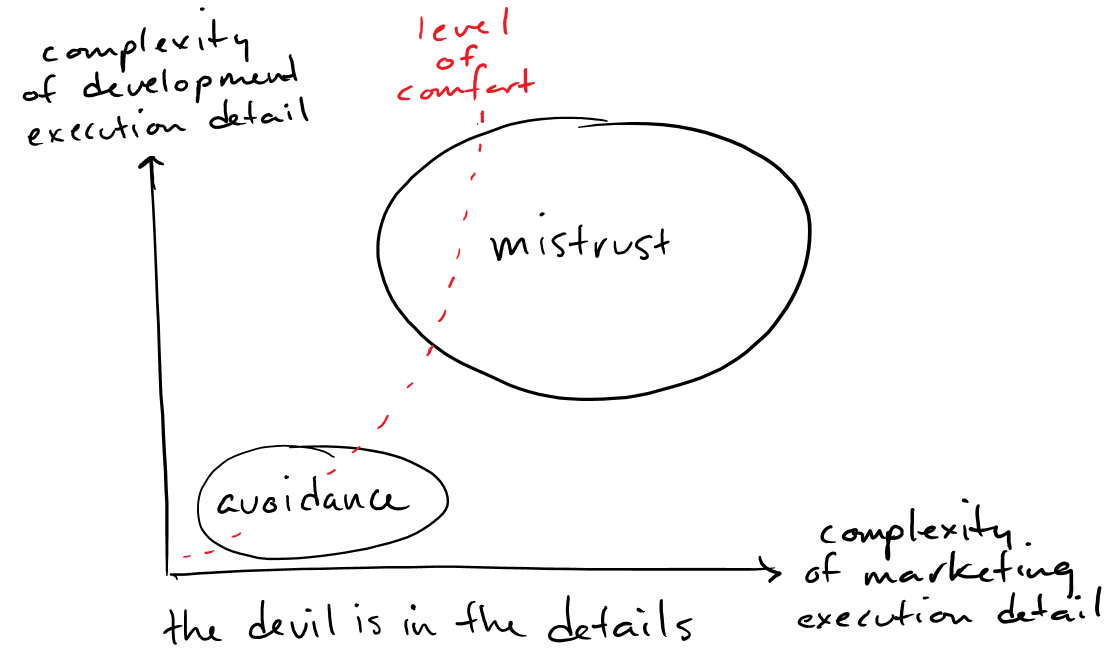 complexity
of development
execution detail
level
of
comfort
mistrust
avoidance
complexity.
of marketing
execution detail
the devil is in the details